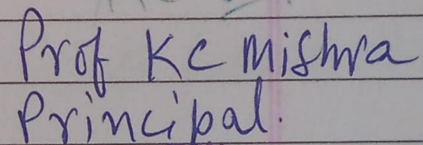 Prof KC Mishra
Principal.